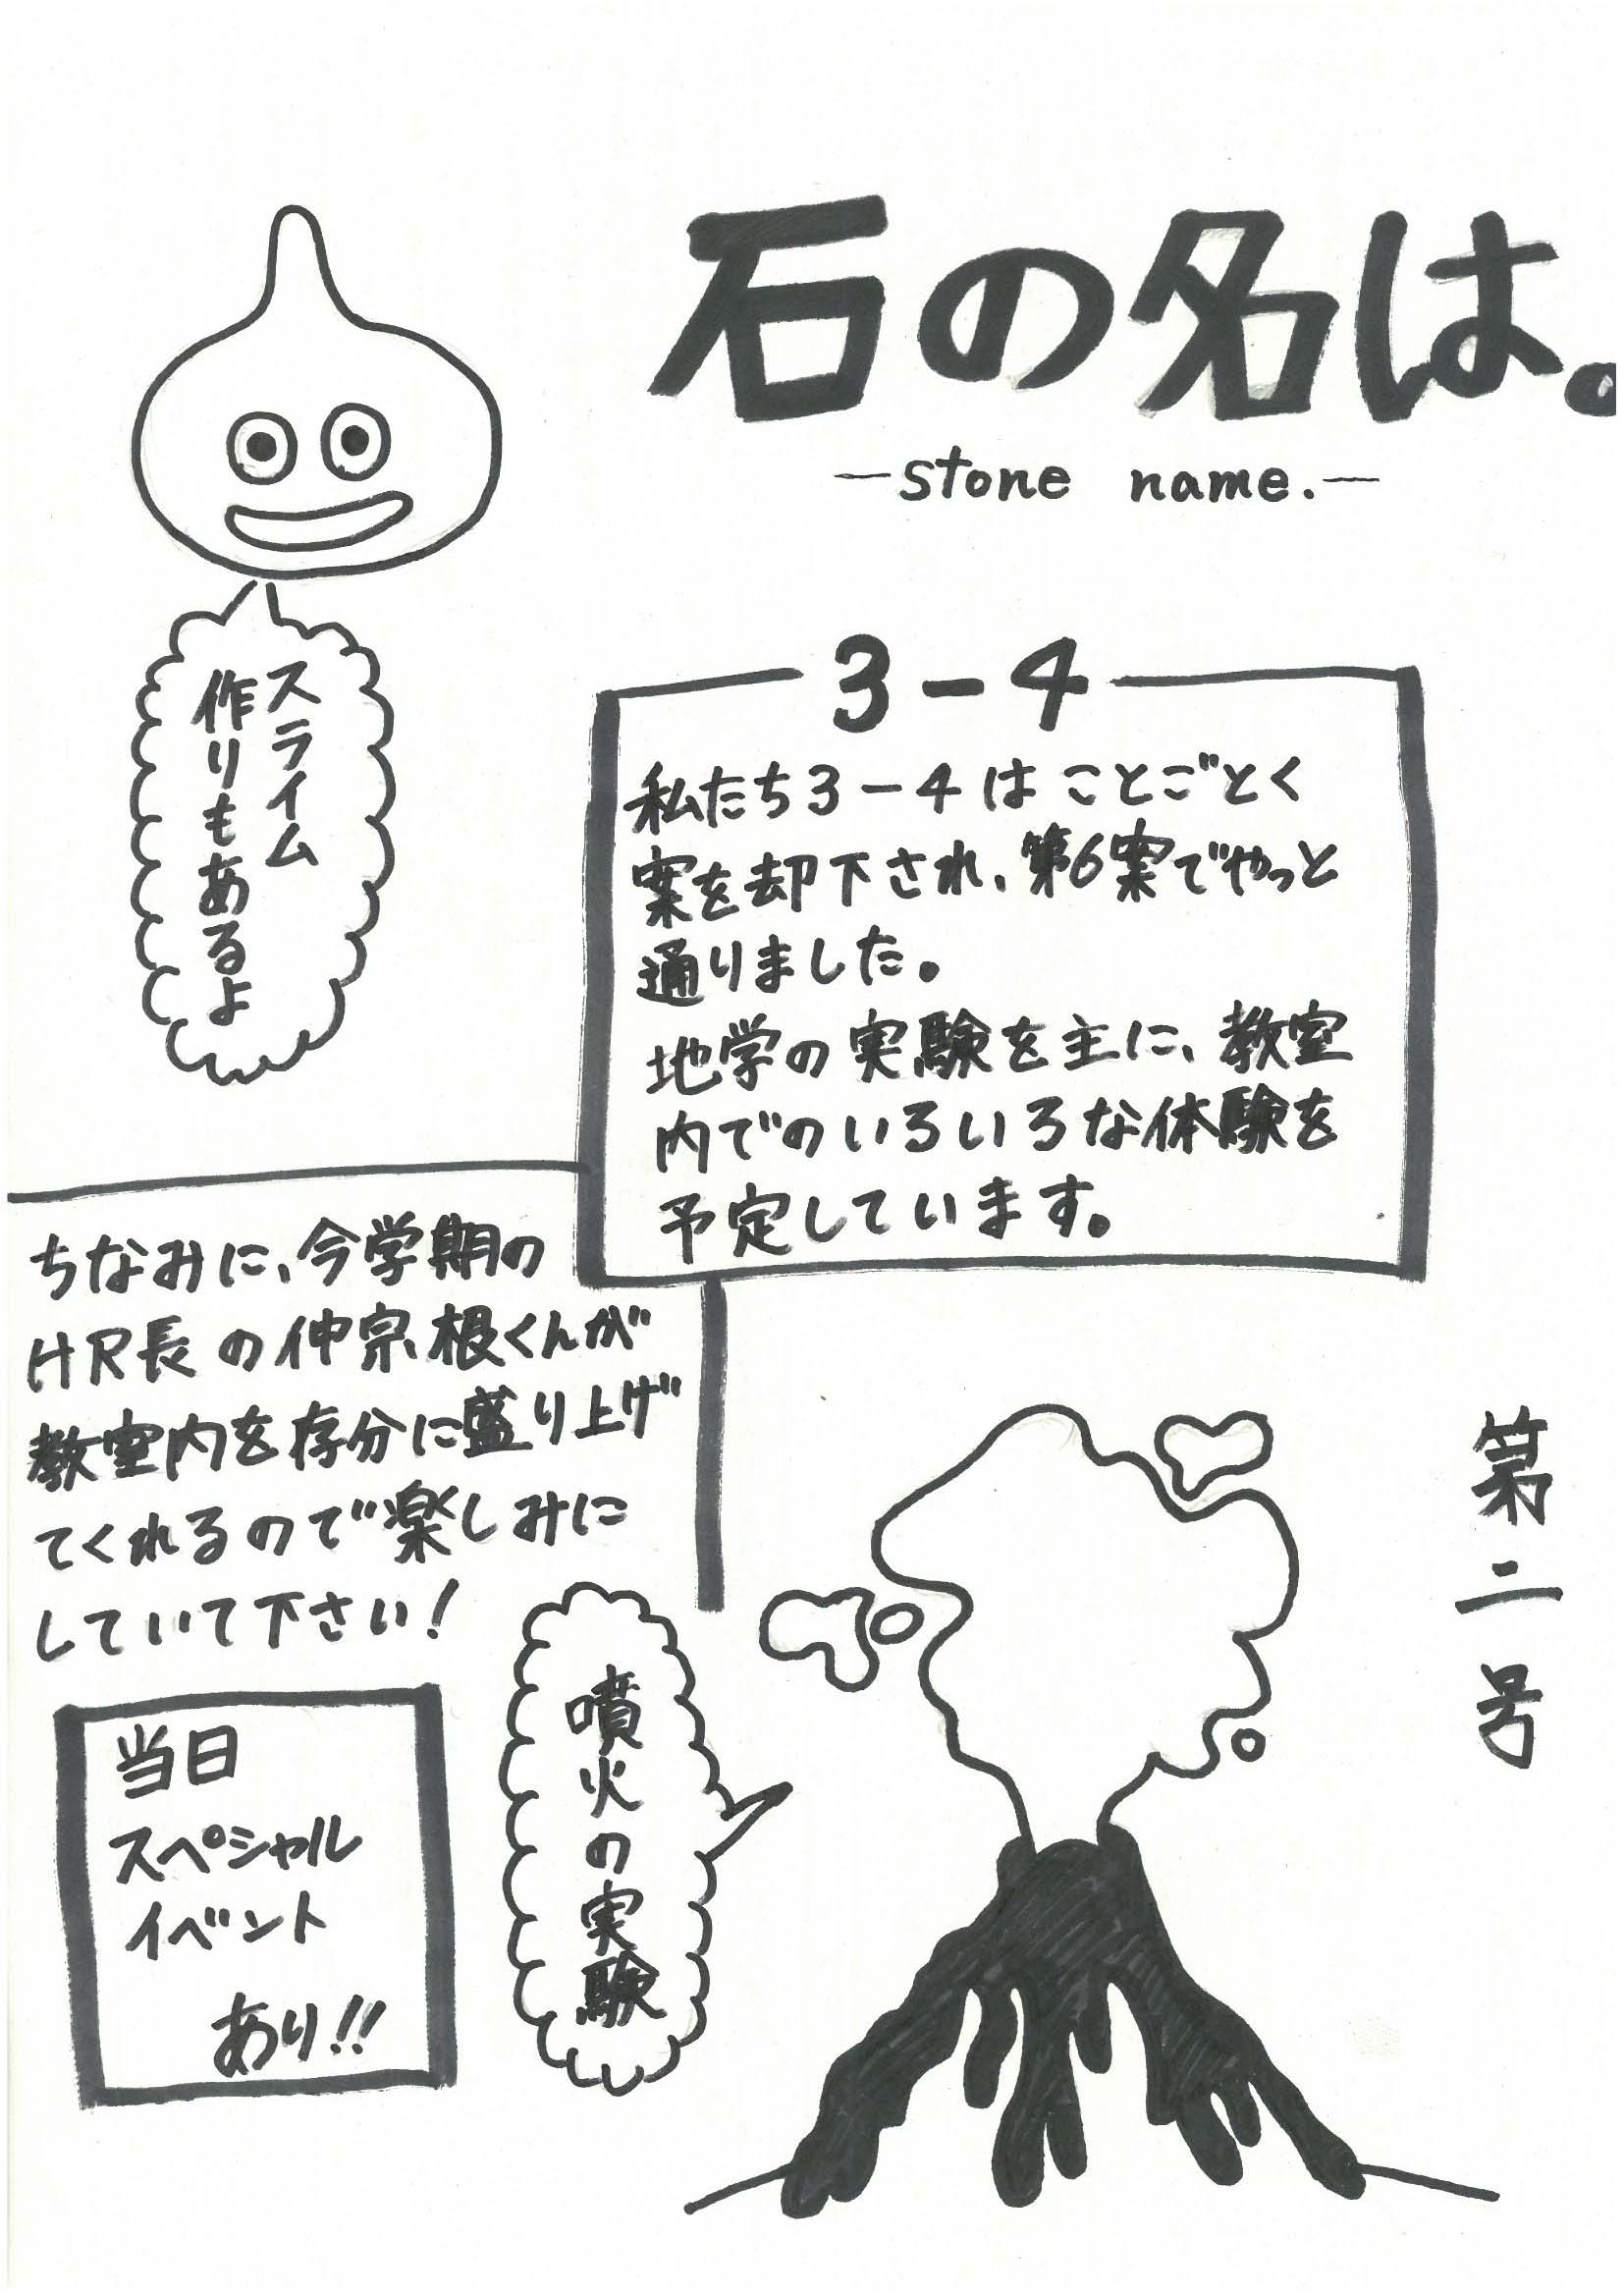 石の名は。
—stone name.—
スライム
作りもあるよ
3-4
私たち3-4はことごとく
案を却下され、第6案でやっと
通りました。
地学の実験を主に、教室
内でのいろいろな体験を
予定しています。
ちなみに、今学期の
HR長の仲宗根くんが
教室内を存分に盛り上げ
てくれるので楽しみに
していて下さい!
第二号
噴火の実験
当日
スペシャル
イベント
あり!!